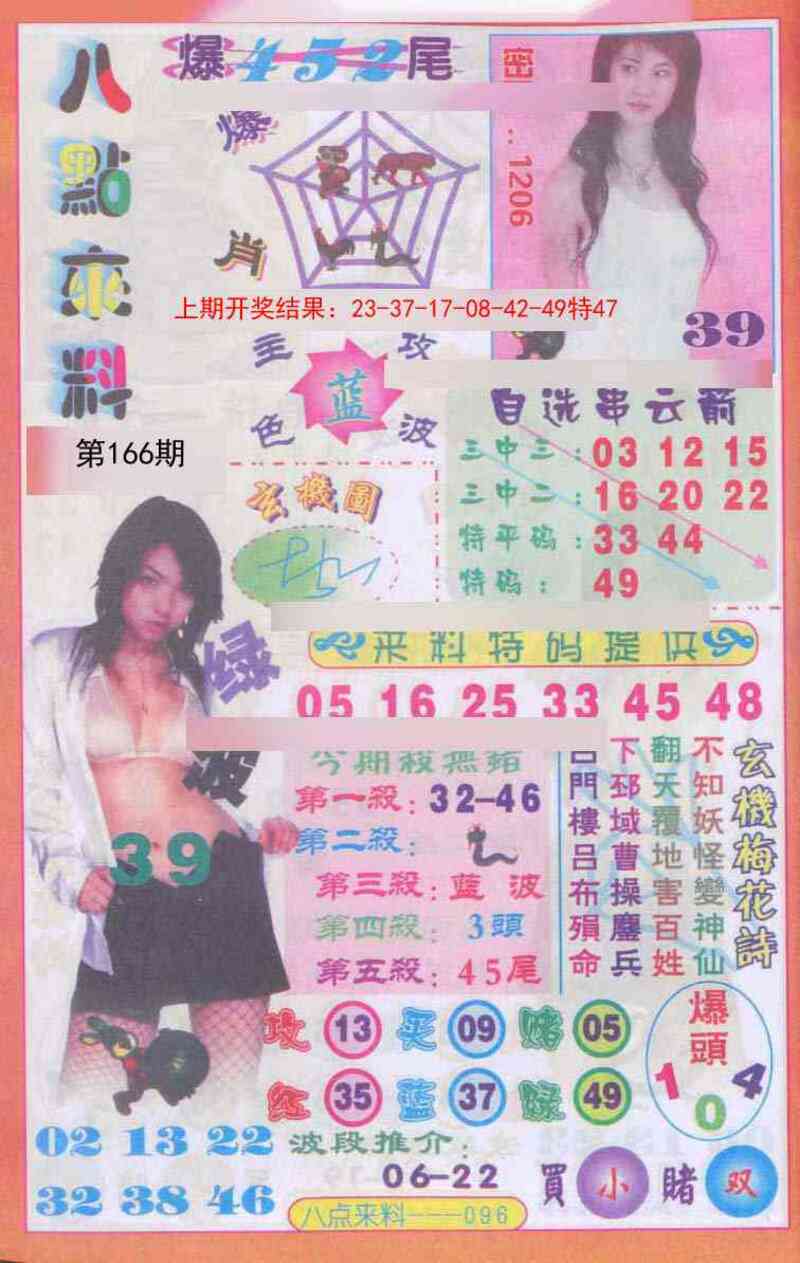 八點來料
爆452尾
爆肖
密..1206
39
上期开奖结果：23-37-17-08-42-49特47
主攻
蓝
色波
第166期
玄機圖
自选串云箭
三中三：03 12 15
三中二：16 20 22
特平码：33 44
特码：49
来料特码提供
05 16 25 33 45 48
绿波
39
今期殺無錯
第一殺：32-46
第二殺：
第三殺：蓝波
第四殺：3頭
第五殺：45尾
玄機梅花詩
不知妖怪變神仙
翻天覆地害百姓
下邳域曹操鏖兵
門樓呂布殞命
攻 13 买 09 赌 05
红 35 蓝 37 绿 49
爆頭
1 0 4
02 13 22
32 38 46
波段推介：
06-22
買小賭双
八点来料---096